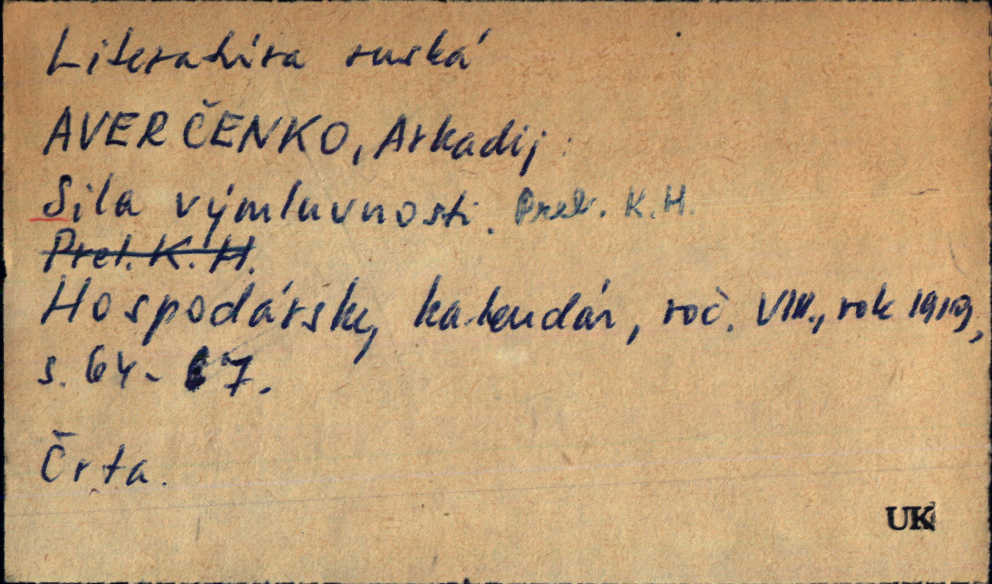 Literatúra ruská
AVERČENKO, Arkadij
Sila výmluvnosti. Prel. K.H.
Prel. K. H.
Hospodársky kalendár, roč. VIII., rok 1919,
s. 64-67.
Črta.
UK